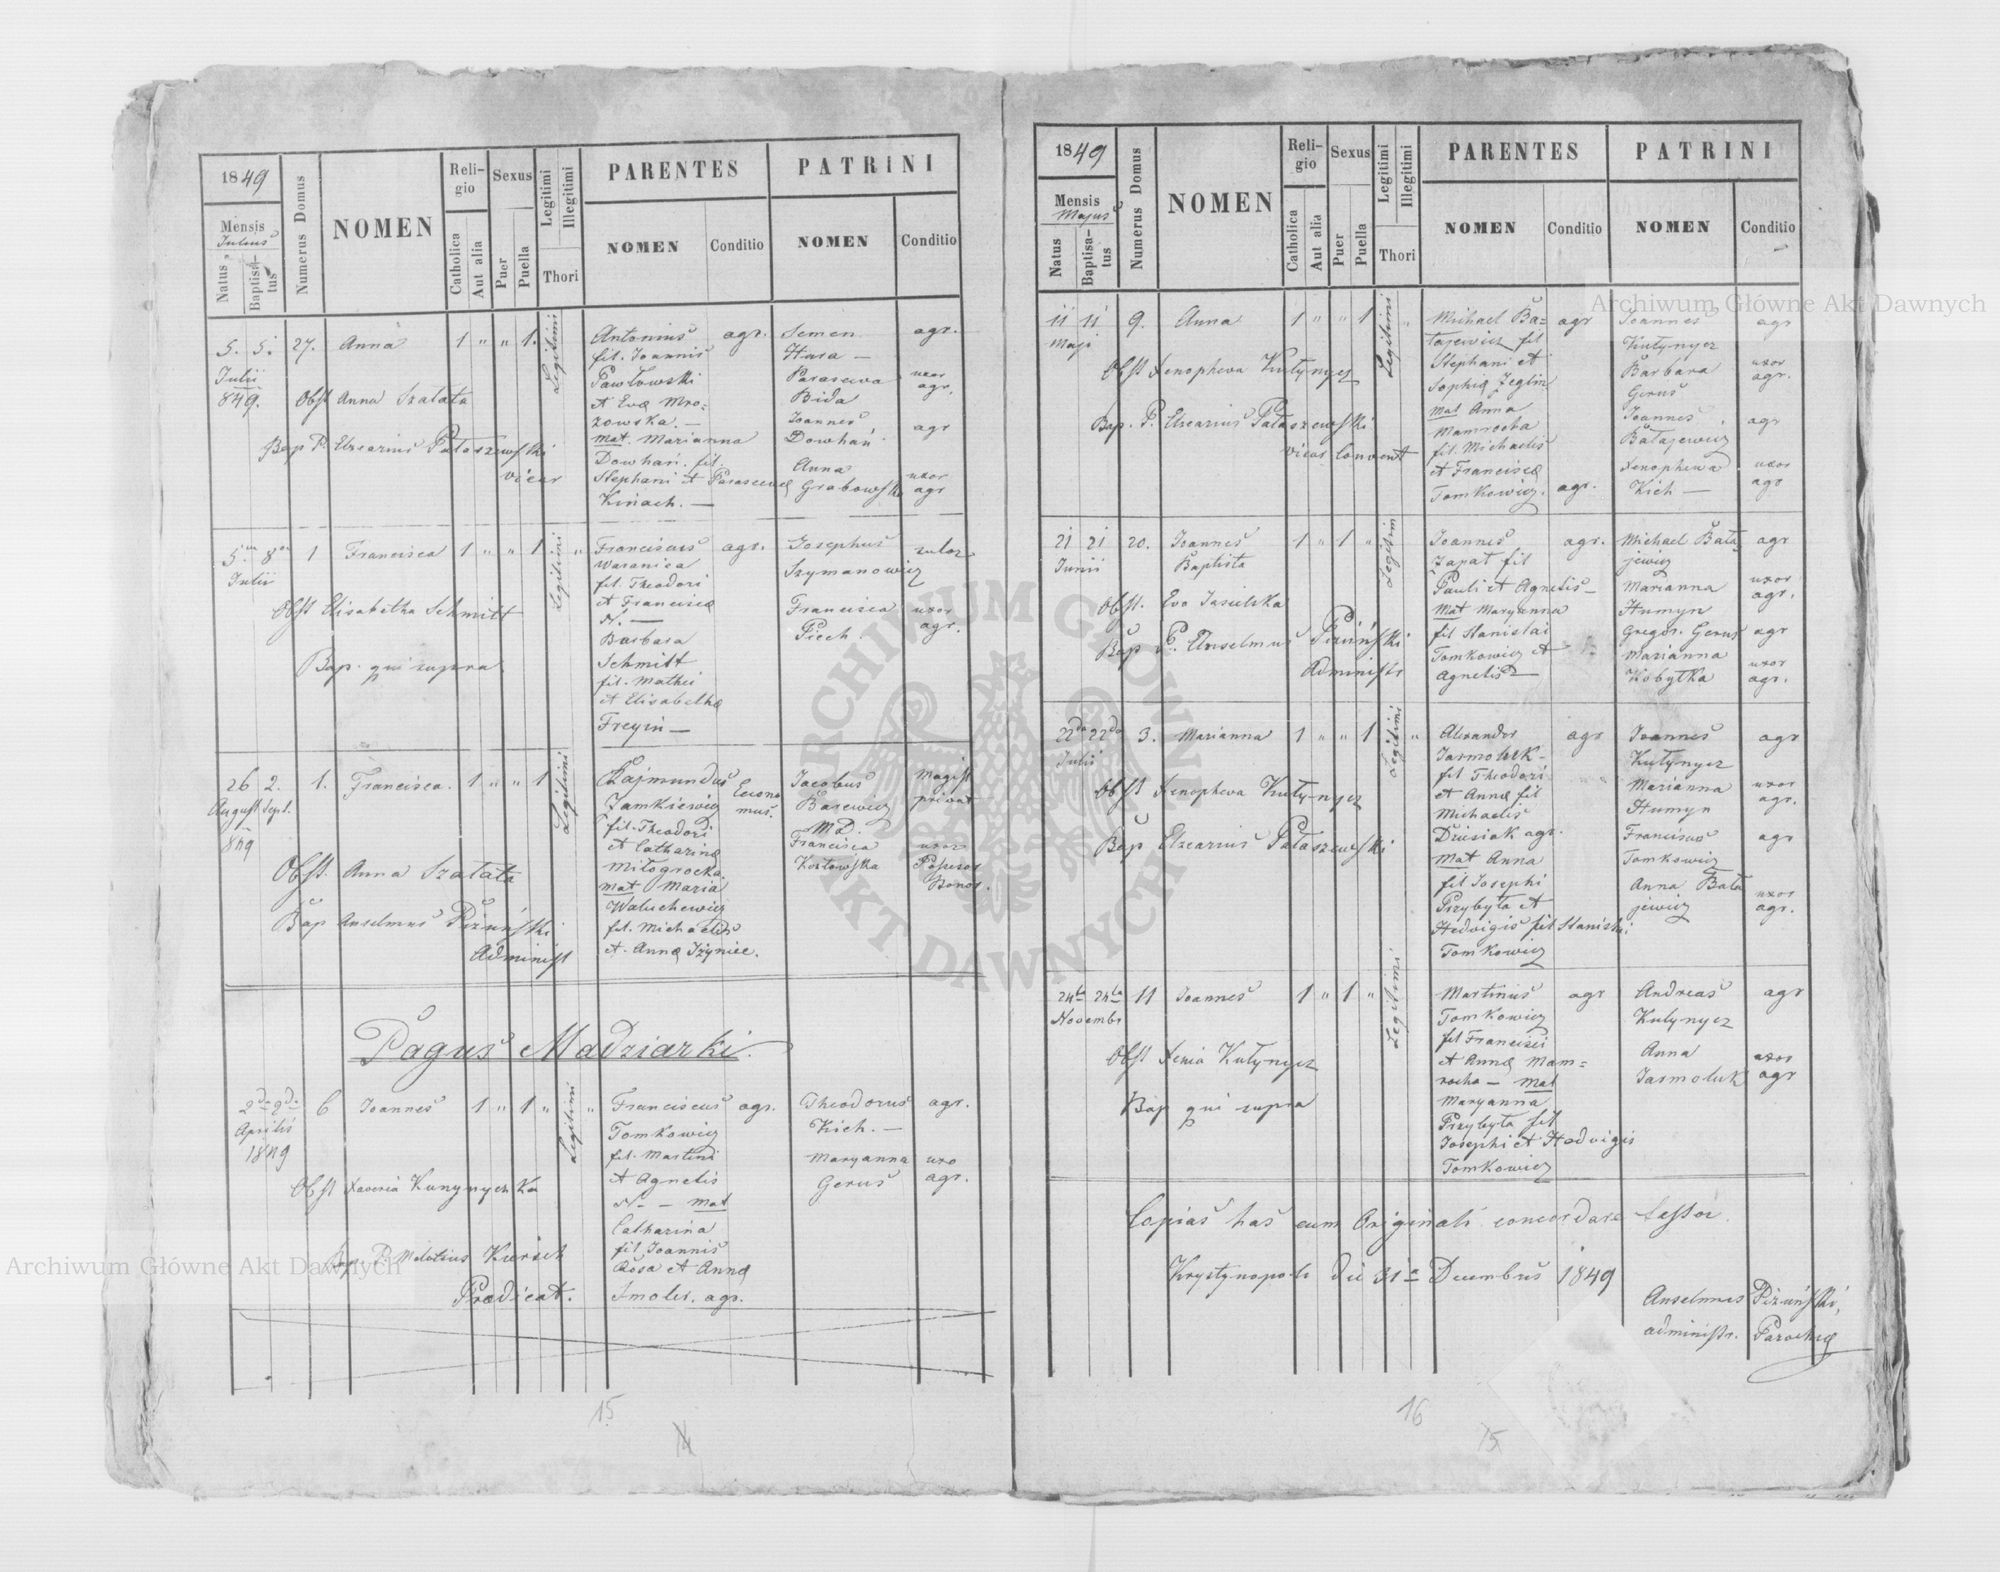 1849
Mensis
Julius
Natus
Baptisatus
Numerus Domus
NOMEN
Religio
Catholica
Aut alia
Sexus
Puer
Puella
Legitimi
Illegitimi
Thori
PARENTES
NOMEN
Conditio
PATRINI
NOMEN
Conditio
5. 5. 27. Anna 1 " " 1. Legitimi
Julii
849.
Obst Anna Szałata
Bap P. Elzearius Pałaszewski
vicar
Antonius agr.
fil. Joannis
Pawłowski
et Evæ Mro=
zowska. —
mat. Marianna
Dowhań. fil
Stephani et Parascevæ
Kinach. —
Semen agr.
Hara —
Parasceva uxor
Bida agr.
Joannes
Dowhań agr
Anna uxor
Grabowska agr
5. 8 1 Francisca 1 " " 1 Legitimi "
Julii
Obst Elisabetha Schmitt
Bap. qui supra
Franciscus agr.
Waranica
fil. Theodori
et Francisca
N. —
Barbara
Schmitt
fil. Mathei
et Elisabethæ
Freyin —
Josephus
Szymanowicz
Francisca uxor
Piech. agr.
26 2. 1. Francisca. 1 " " 1 Legitimi
August. Sept.
849
Obst. Anna Szałata
Bap Anselmus Piźuński
Administ
Rajmundus Econo
Jamkiewicz mus.
fil. Theodori
et Catharinæ
Miłogrocka.
mat Maria
Waluchewicz
fil. Michaelis
et Annæ
Jacobus Magist
Barewicz privat
M D.
Francisca uxor
Kozłowska Possessor
Bonor.
Pagus Madziarki.
2da 2da 6 Joannes 1 " 1 " Legitimi "
Aprilis
1849
Obst Xaveria Kunynychka
Bap P. Kursch
Prædicat.
Franciscus agr.
Tomkowicz
fil. Martini
et Agnetis
N. — mat
Catharina
fil Joannis
Rosa et Annæ
Smoler. agr.
Theodorus agr.
Kich. —
Maryanna uxo
Gerus agr.
15
14
1849
Mensis
Majus
Natus
Baptisatus
Numerus Domus
NOMEN
Religio
Catholica
Aut alia
Sexus
Puer
Puella
Legitimi
Illegitimi
Thori
PARENTES
NOMEN
Conditio
PATRINI
NOMEN
Conditio
11 11 9. Anna 1 " " 1 Legitimi "
Maji
Obst Xenopheva Kułynycz
Bap. P. Elzearius Pałaszewski
vicar Convent
Michael Ba= agr
łajewicz fil
Stephani et
Sophiæ Zeglin
mat Anna
Mamrocha
fil. Michaelis
et Franciscæ
Tomkowicz. agr.
Joannes agr
Kułynycz
Barbara uxor
Gerus agr.
Joannes agr
Bałajewicz
Xenophewa uxor
Kich — agr
21 21 20. Joannes 1 " 1 " Legitim
Junii Baptista
Obst. Eva Jasielska
Bap P. Anselmus Piźuński
Administr
Joannes agr.
Zapał fil
Pauli et Agnetis —
Mat Maryanna
fil Stanislai
Tomkowicz et
Agnetis
Michael Bała agr
jewicz
Marianna uxor
Humyn agr.
Gregor. Gerus agr
Marianna uxor
Kobyłka agr.
22da 22da 3. Marianna 1 " " 1 Legitimi "
Julii
Obst Xenopheva Kułynycz
Bap Elzearius Pałaszewski
Alexander agr
Jasmoluk
fil Theodori
et Annæ fil
Michaelis
Dzisiak agr.
Mat Anna
fil Josephi
Przybyła et
Hedvigis fil Stanislai
Tomkowicz
Joannes agr
Kułynycz
Marianna uxor
Humyn agr.
Franciscus agr
Tomkowicz
Anna Bała uxor
jewicz agr.
24ta 24ta 11 Joannes 1 " 1 " Legitimi
Novembr
Obst Xenia Kułynycz
Bap qui supra
Martinus agr
Tomkowicz
fil Francisci
et Annæ Mam=
rocha — mat
Maryanna
Przybyła fil
Josephi et Hedvigis
Tomkowicz
Andreas agr
Kułynycz
Anna uxor
Jasmoluk agr
Copias has cum Originali concordare testor.
Krystynopoli die 31a Decembris 1849
Anselmus Piźuński,
administr. Parochiæ
16
15
Archiwum Główne Akt Dawnych
Archiwum Główne Akt Dawnych
ARCHIWUM GŁÓWNE AKT DAWNYCH